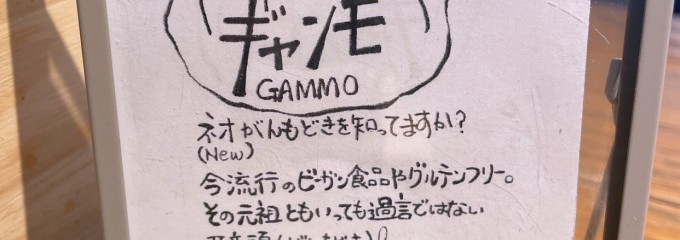 ギャンモ
GAMMO
ネオがんもどきを知ってますか?
(New)
今流行のビーガン食品やグルテンフリー。
その元祖ともいっても過言ではない